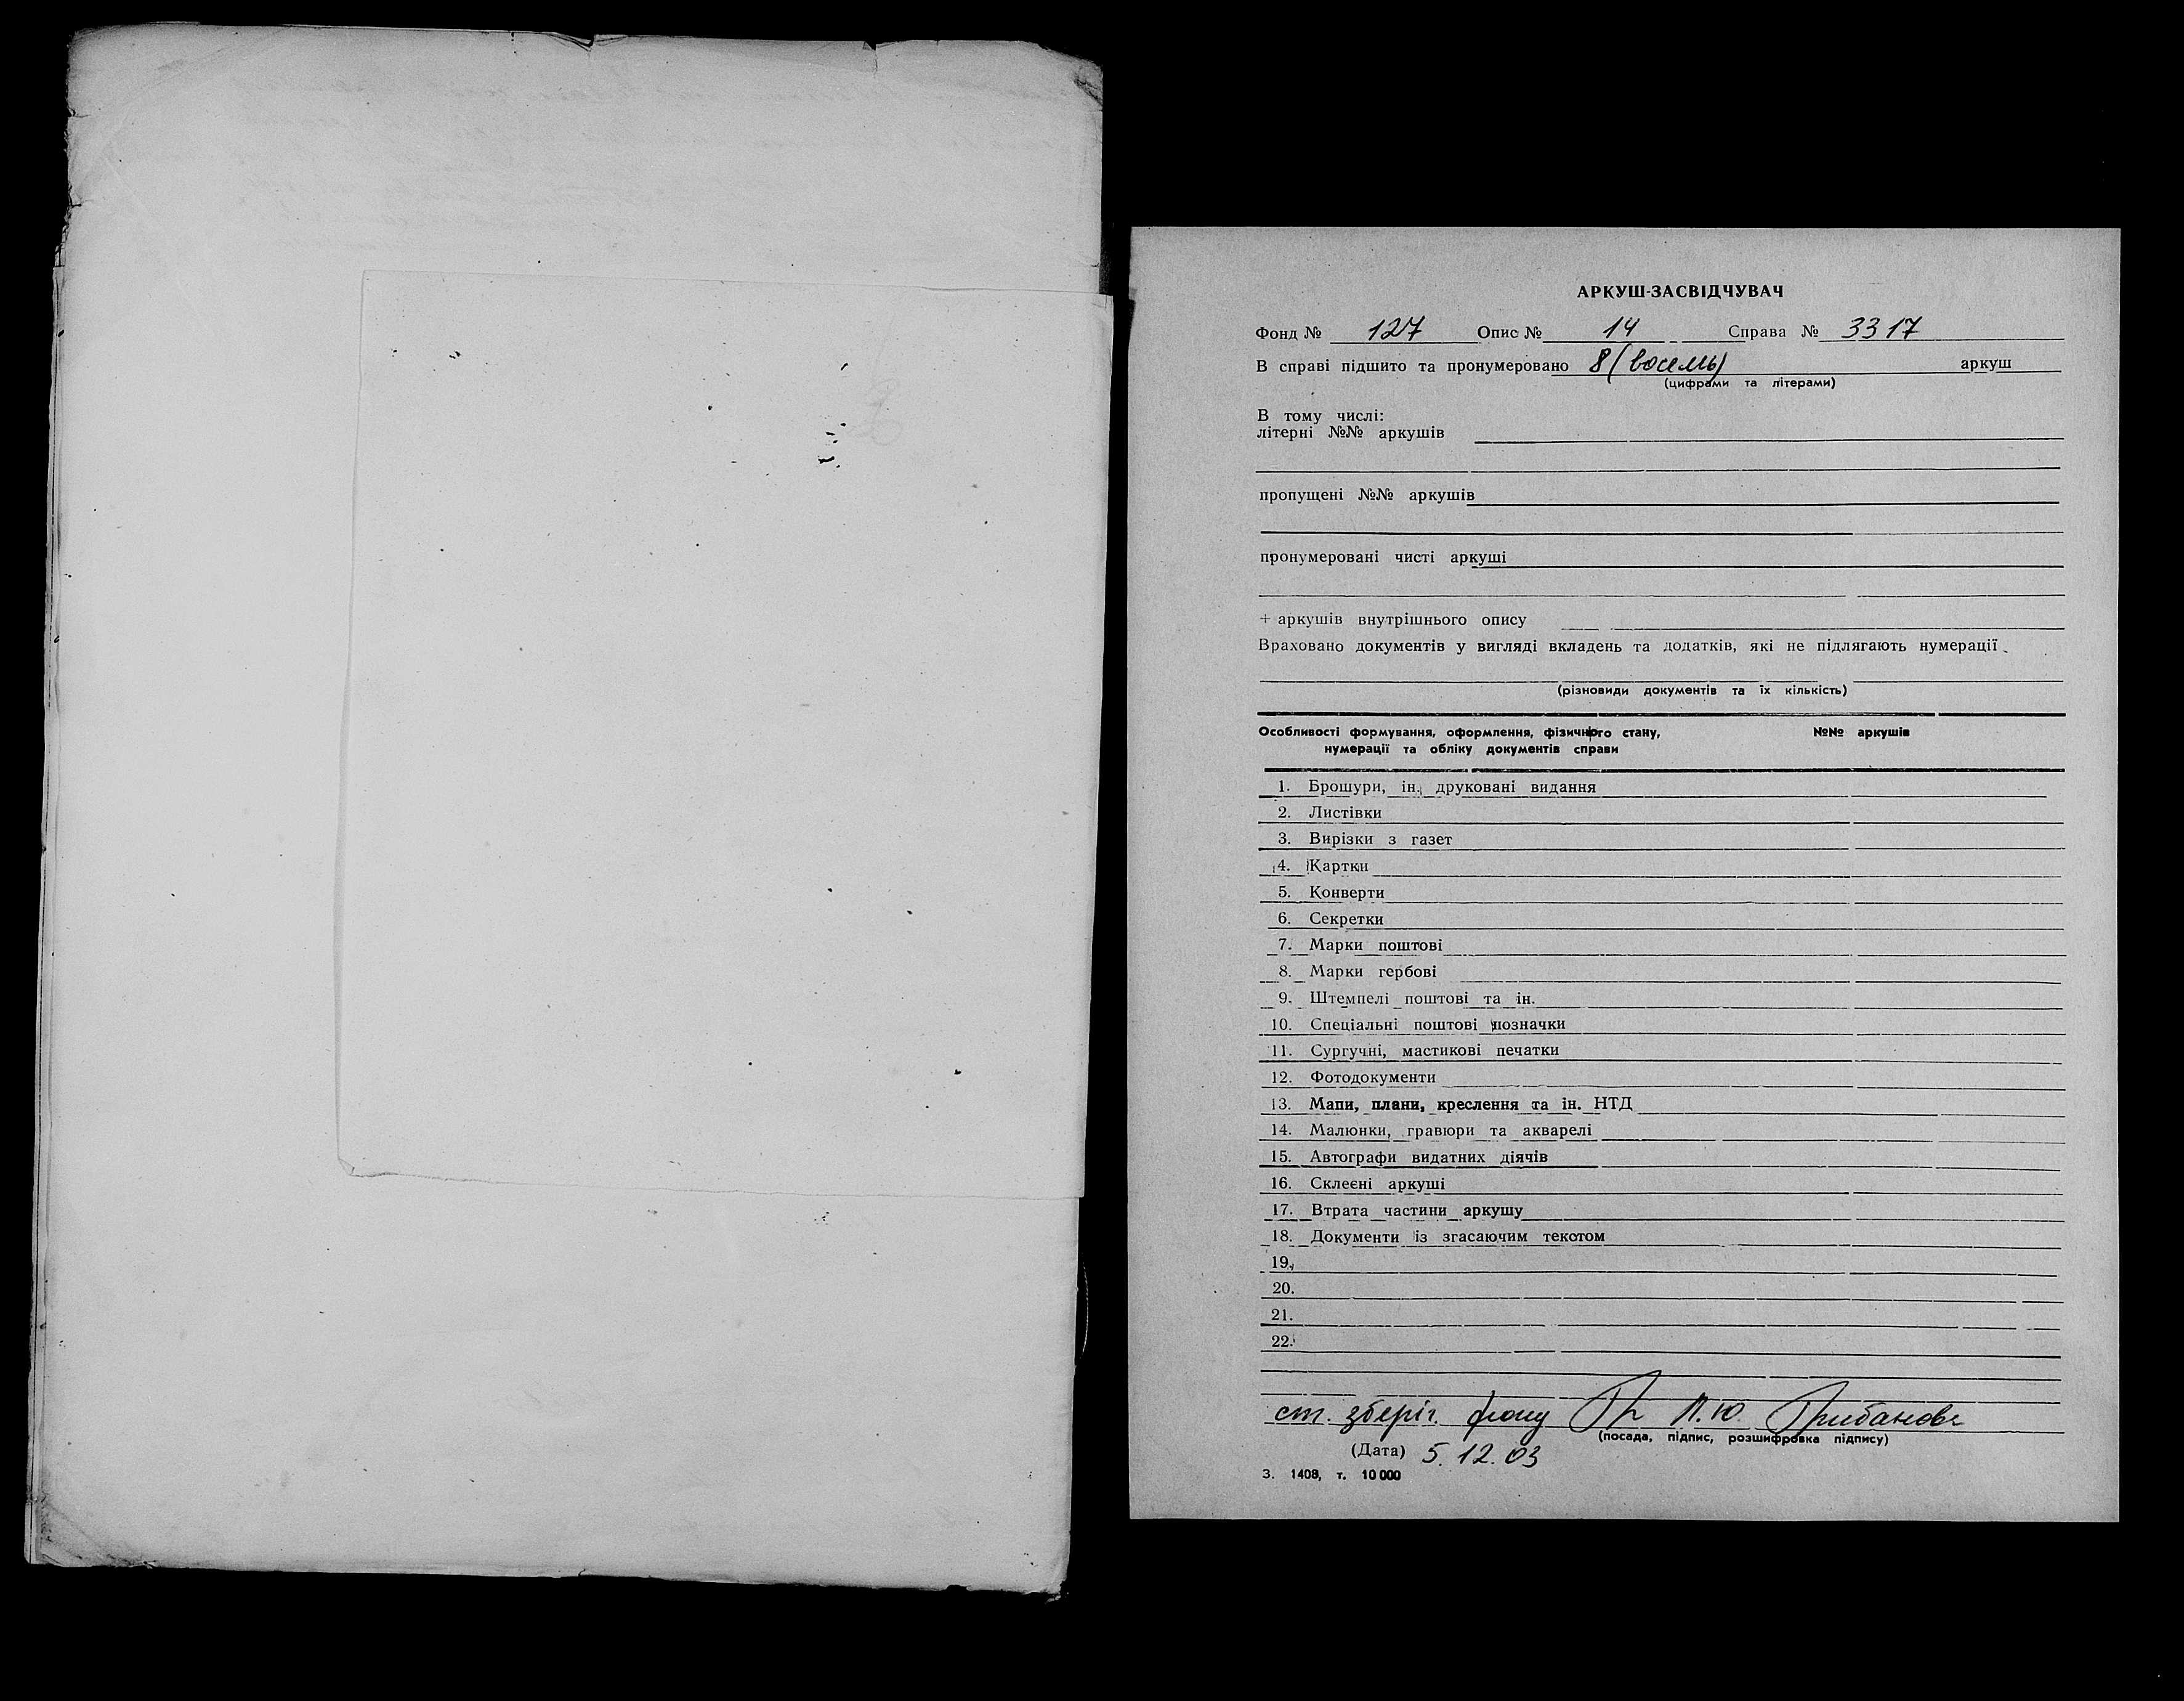 АРКУШ-ЗАСВІДЧУВАЧ
Фонд № 127 Опис № 14 Справа № 3317
В справі підшито та пронумеровано 8 (восемь) аркуш
(цифрами та літерами)
В тому числі:
літерні №№ аркушів
пропущені №№ аркушів
пронумеровані чисті аркуші
+ аркушів внутрішнього опису
Враховано документів у вигляді вкладень та додатків, які не підлягають нумерації
(різновиди документів та їх кількість)
Особливості формування, оформлення, фізичного стану, №№ аркушів
нумерації та обліку документів справи
1. Брошури, ін. друковані видання
2. Листівки
3. Вирізки з газет
4. Картки
5. Конверти
6. Секретки
7. Марки поштові
8. Марки гербові
9. Штемпелі поштові та ін.
10. Спеціальні поштові позначки
11. Сургучні, мастикові печатки
12. Фотодокументи
13. Мапи, плани, креслення та ін. НТД
14. Малюнки, гравюри та акварелі
15. Автографи видатних діячів
16. Склеєні аркуші
17. Втрата частини аркушу
18. Документи із згасаючим текстом
19.
20.
21.
22.
ст. зберіг. фонду П.Ю.
(посада, підпис, розшифровка підпису)
(Дата) 5.12.03
З. 1408, т. 10 000